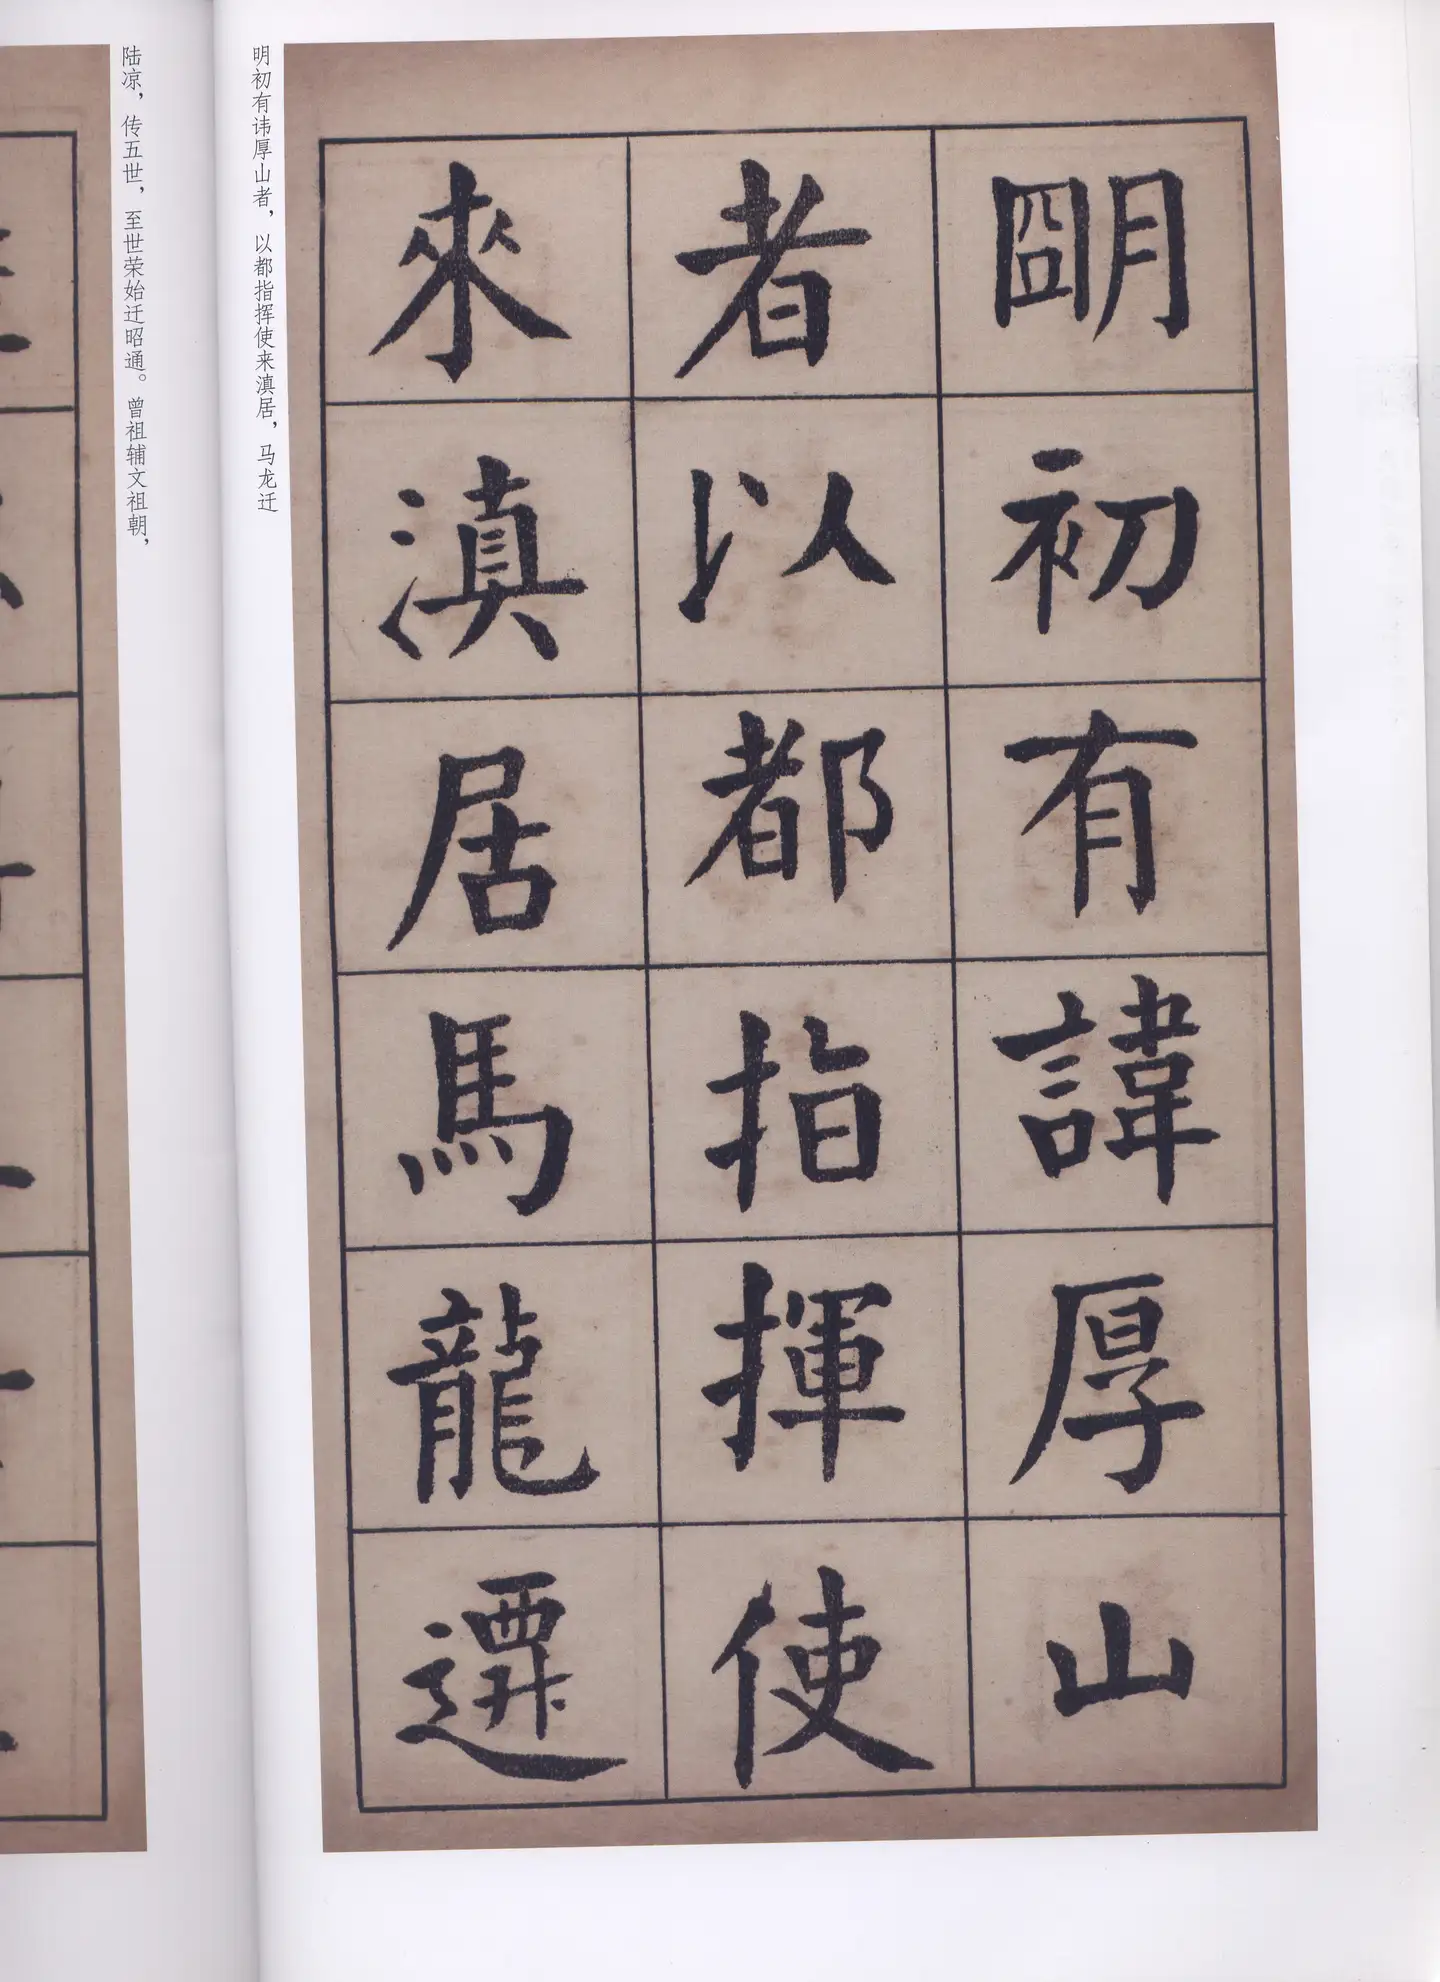 明初有諱厚山
者以都指揮使
來滇居馬龍遷
明初有讳厚山者，以都指挥使来滇居，马龙迁
陆凉，传五世，至世荣始迁昭通。曾祖辅文祖朝，